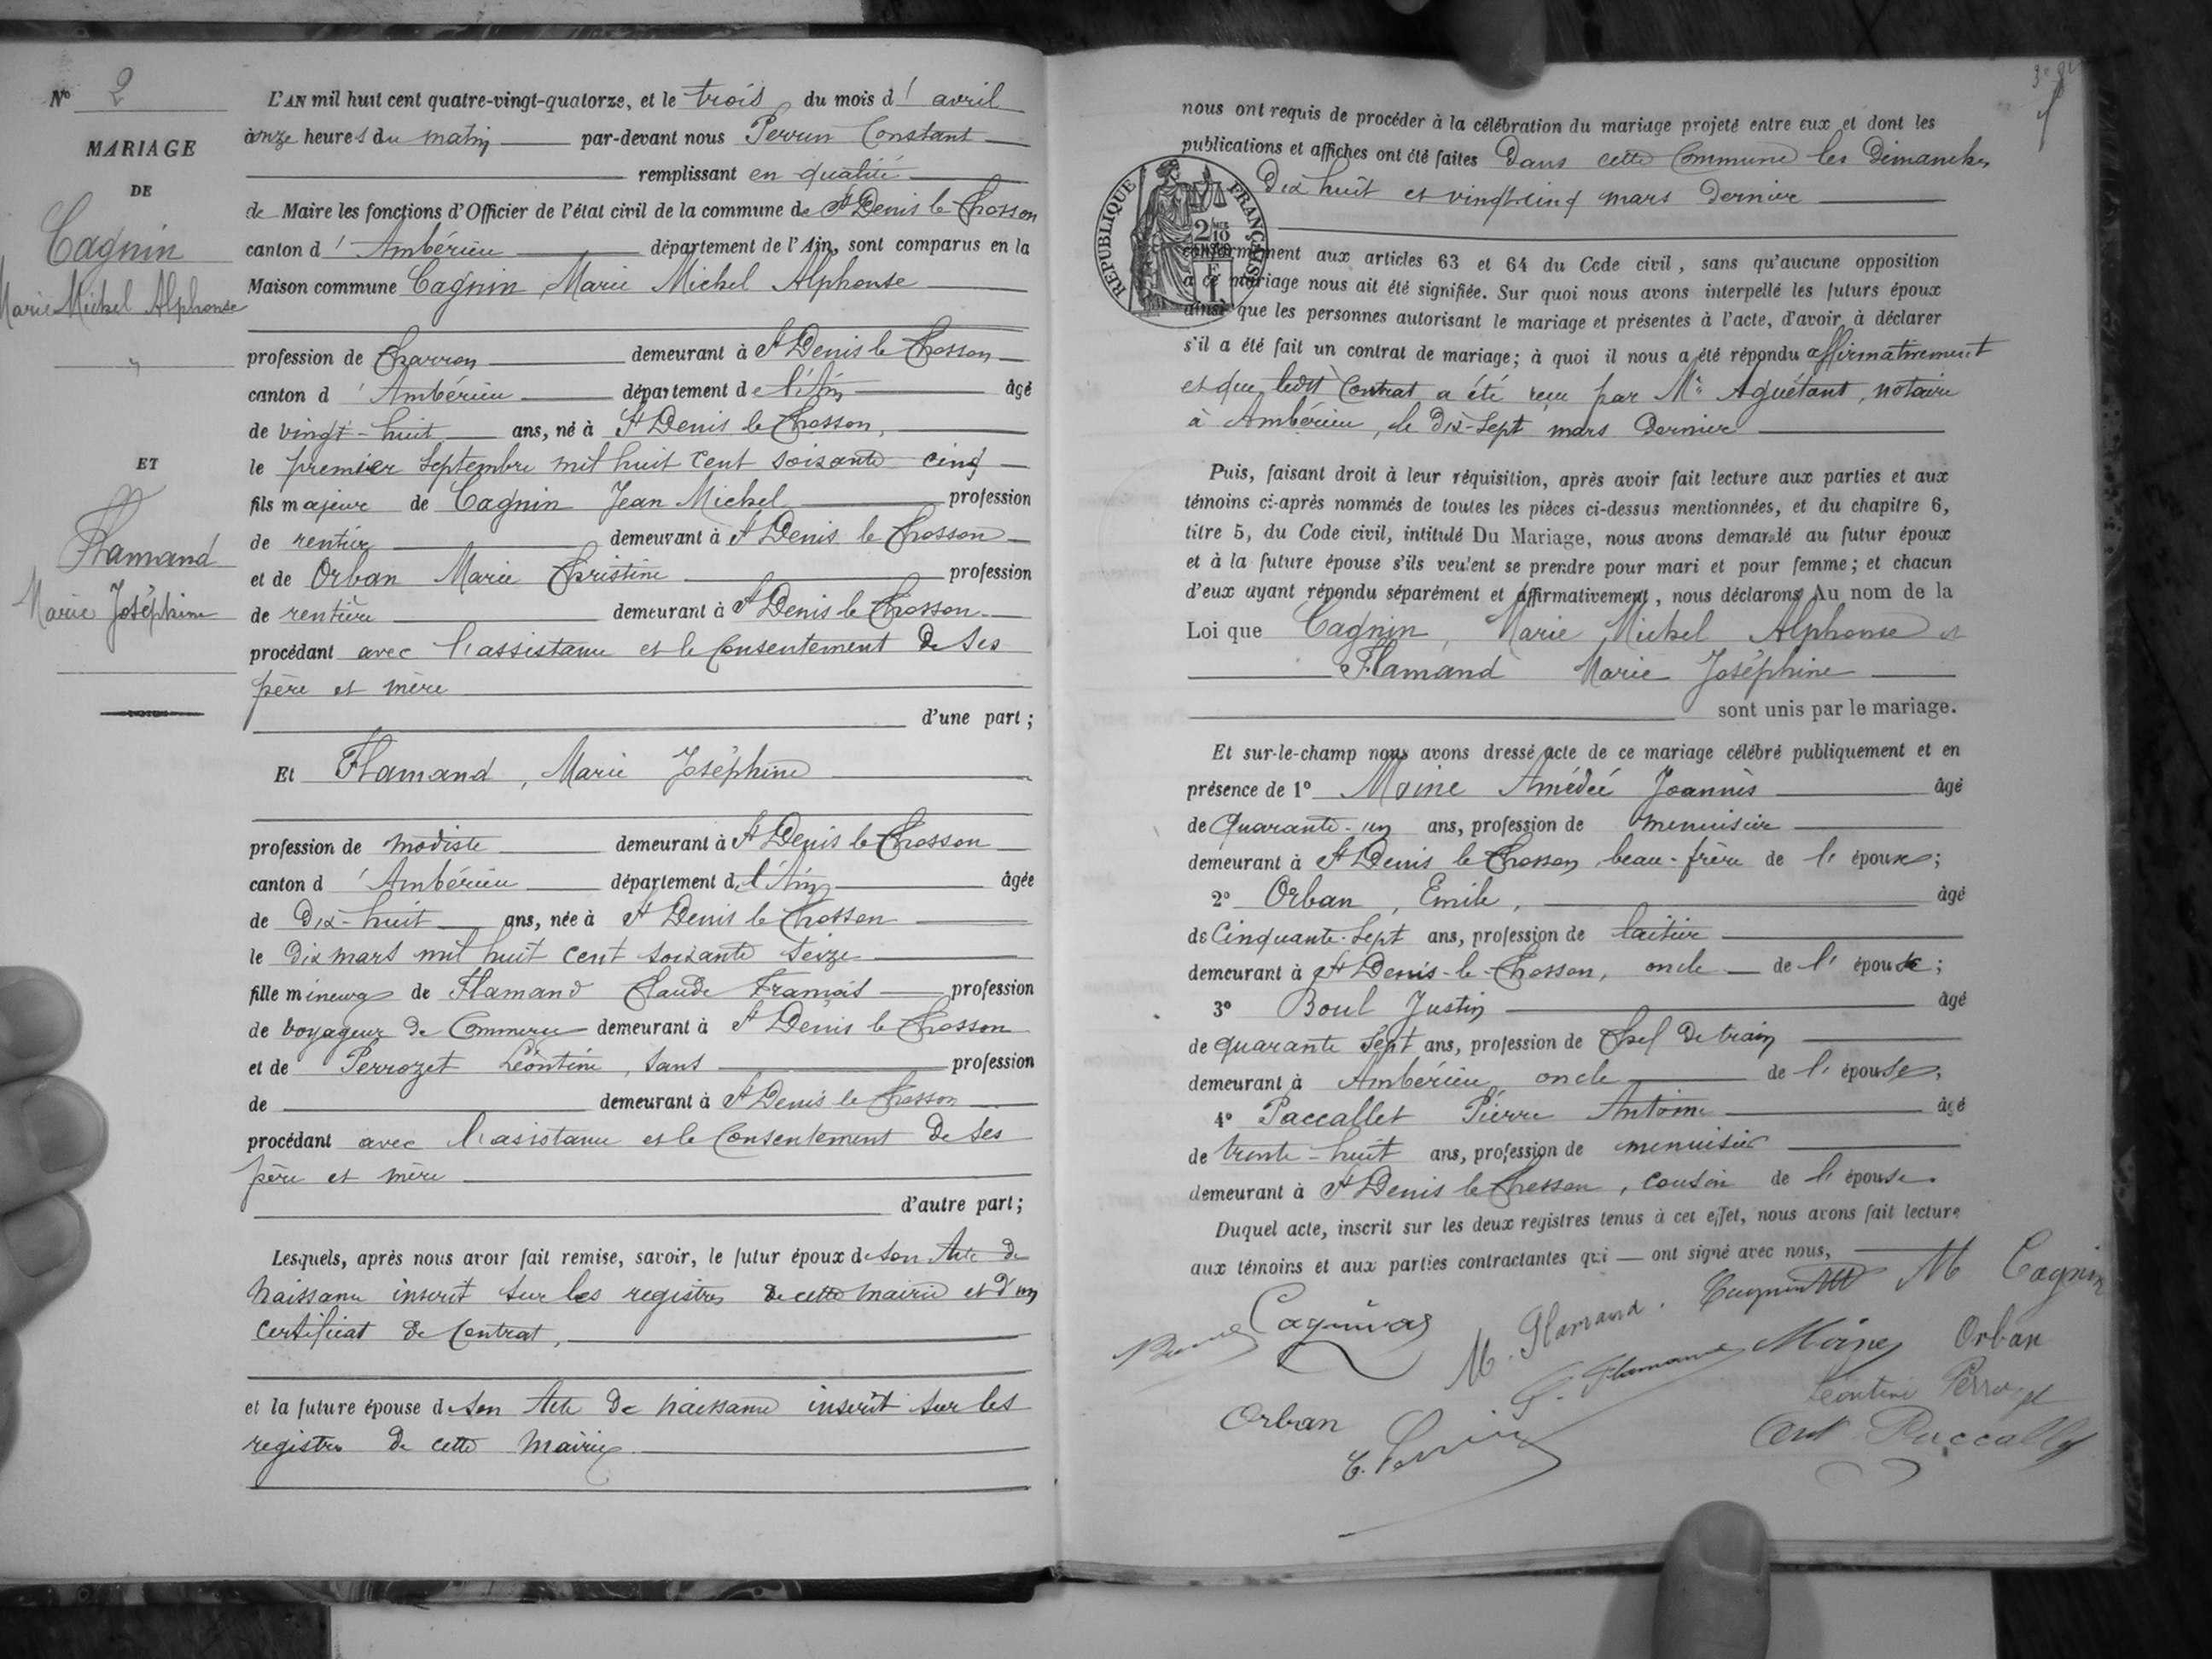 N° 2
MARIAGE
DE
Cagnin
Marie Michel Alphonse
ET
Flamand
Marie Joséphine
L'AN mil huit cent quatre-vingt-quatorze, et le trois du mois d' avril
à onze heures du matin par-devant nous Perrin Constant
remplissant en qualité
de Maire les fonctions d'Officier de l'état civil de la commune de St Denis le Chosson
canton d' Ambérieu département de l'Ain, sont comparus en la
Maison commune Cagnin, Marie Michel Alphonse
profession de Charron demeurant à St Denis le Chosson
canton d' Ambérieu département de l'Ain âgé
de vingt-huit ans, né à St Denis le Chosson,
le premier Septembre mil huit cent soixante cinq
fils majeur de Cagnin Jean Michel profession
de rentier demeurant à St Denis le Chosson
et de Orban Marie Christine profession
de rentière demeurant à St Denis le Chosson
procédant avec l'assistance et le Consentement de ses
père et mère
d'une part;
Et Flamand, Marie Joséphine
profession de modiste demeurant à St Denis le Chosson
canton d' Ambérieu département de l'Ain âgée
de dix-huit ans, née à St Denis le Chosson
le dix mars mil huit cent soixante seize
fille mineure de Flamand Claude François profession
de voyageur de Commerce demeurant à St Denis le Chosson
et de Perrozet Léontine, sans profession
de demeurant à St Denis le Chosson
procédant avec l'assistance et le Consentement de ses
père et mère
d'autre part;
Lesquels, après nous avoir fait remise, savoir, le futur époux de son Acte de
naissance inscrit sur les registres de cette mairie et d'un
certificat de Contrat,
et la future épouse de son Acte de naissance inscrit sur les
registres de cette mairie
nous ont requis de procéder à la célébration du mariage projeté entre eux et dont les
publications et affiches ont été faites dans cette Commune les Dimanches
dix huit et vingt-cinq mars dernier
RÉPUBLIQUE FRANÇAISE
conformément aux articles 63 et 64 du Code civil, sans qu'aucune opposition
à ce mariage nous ait été signifiée. Sur quoi nous avons interpellé les futurs époux
ainsi que les personnes autorisant le mariage et présentes à l'acte, d'avoir à déclarer
s'il a été fait un contrat de mariage; à quoi il nous a été répondu affirmativement
et que ledit Contrat a été reçu par Me Aguétant, notaire
à Ambérieu, le dix-sept mars dernier
Puis, faisant droit à leur réquisition, après avoir fait lecture aux parties et aux
témoins ci-après nommés de toutes les pièces ci-dessus mentionnées, et du chapitre 6,
titre 5, du Code civil, intitulé Du Mariage, nous avons demandé au futur époux
et à la future épouse s'ils veulent se prendre pour mari et pour femme; et chacun
d'eux ayant répondu séparément et affirmativement, nous déclarons Au nom de la
Loi que Cagnin, Marie Michel Alphonse et
Flamand Marie Joséphine
sont unis par le mariage.
Et sur-le-champ nous avons dressé acte de ce mariage célébré publiquement et en
présence de 1° Moine Amédée Joannès âgé
de Quarante-un ans, profession de menuisier
demeurant à St Denis le Chosson, beau-frère de l'époux;
2° Orban, Emile, âgé
de Cinquante-sept ans, profession de laitier
demeurant à St Denis-le-Chosson, oncle de l'époux;
3° Boul Justin âgé
de quarante sept ans, profession de Chef de train
demeurant à Ambérieu oncle de l'épouse,
4° Paccallet Pierre Antoine âgé
de trente-huit ans, profession de menuisier
demeurant à St Denis le Chosson, cousin de l'épouse.
Duquel acte, inscrit sur les deux registres tenus à cet effet, nous avons fait lecture
aux témoins et aux parties contractantes qui ont signé avec nous,
M Cagnin
M. Flamand
Flamand Moine Orban
Léontine Perrozet
Orban
Ant Paccallet